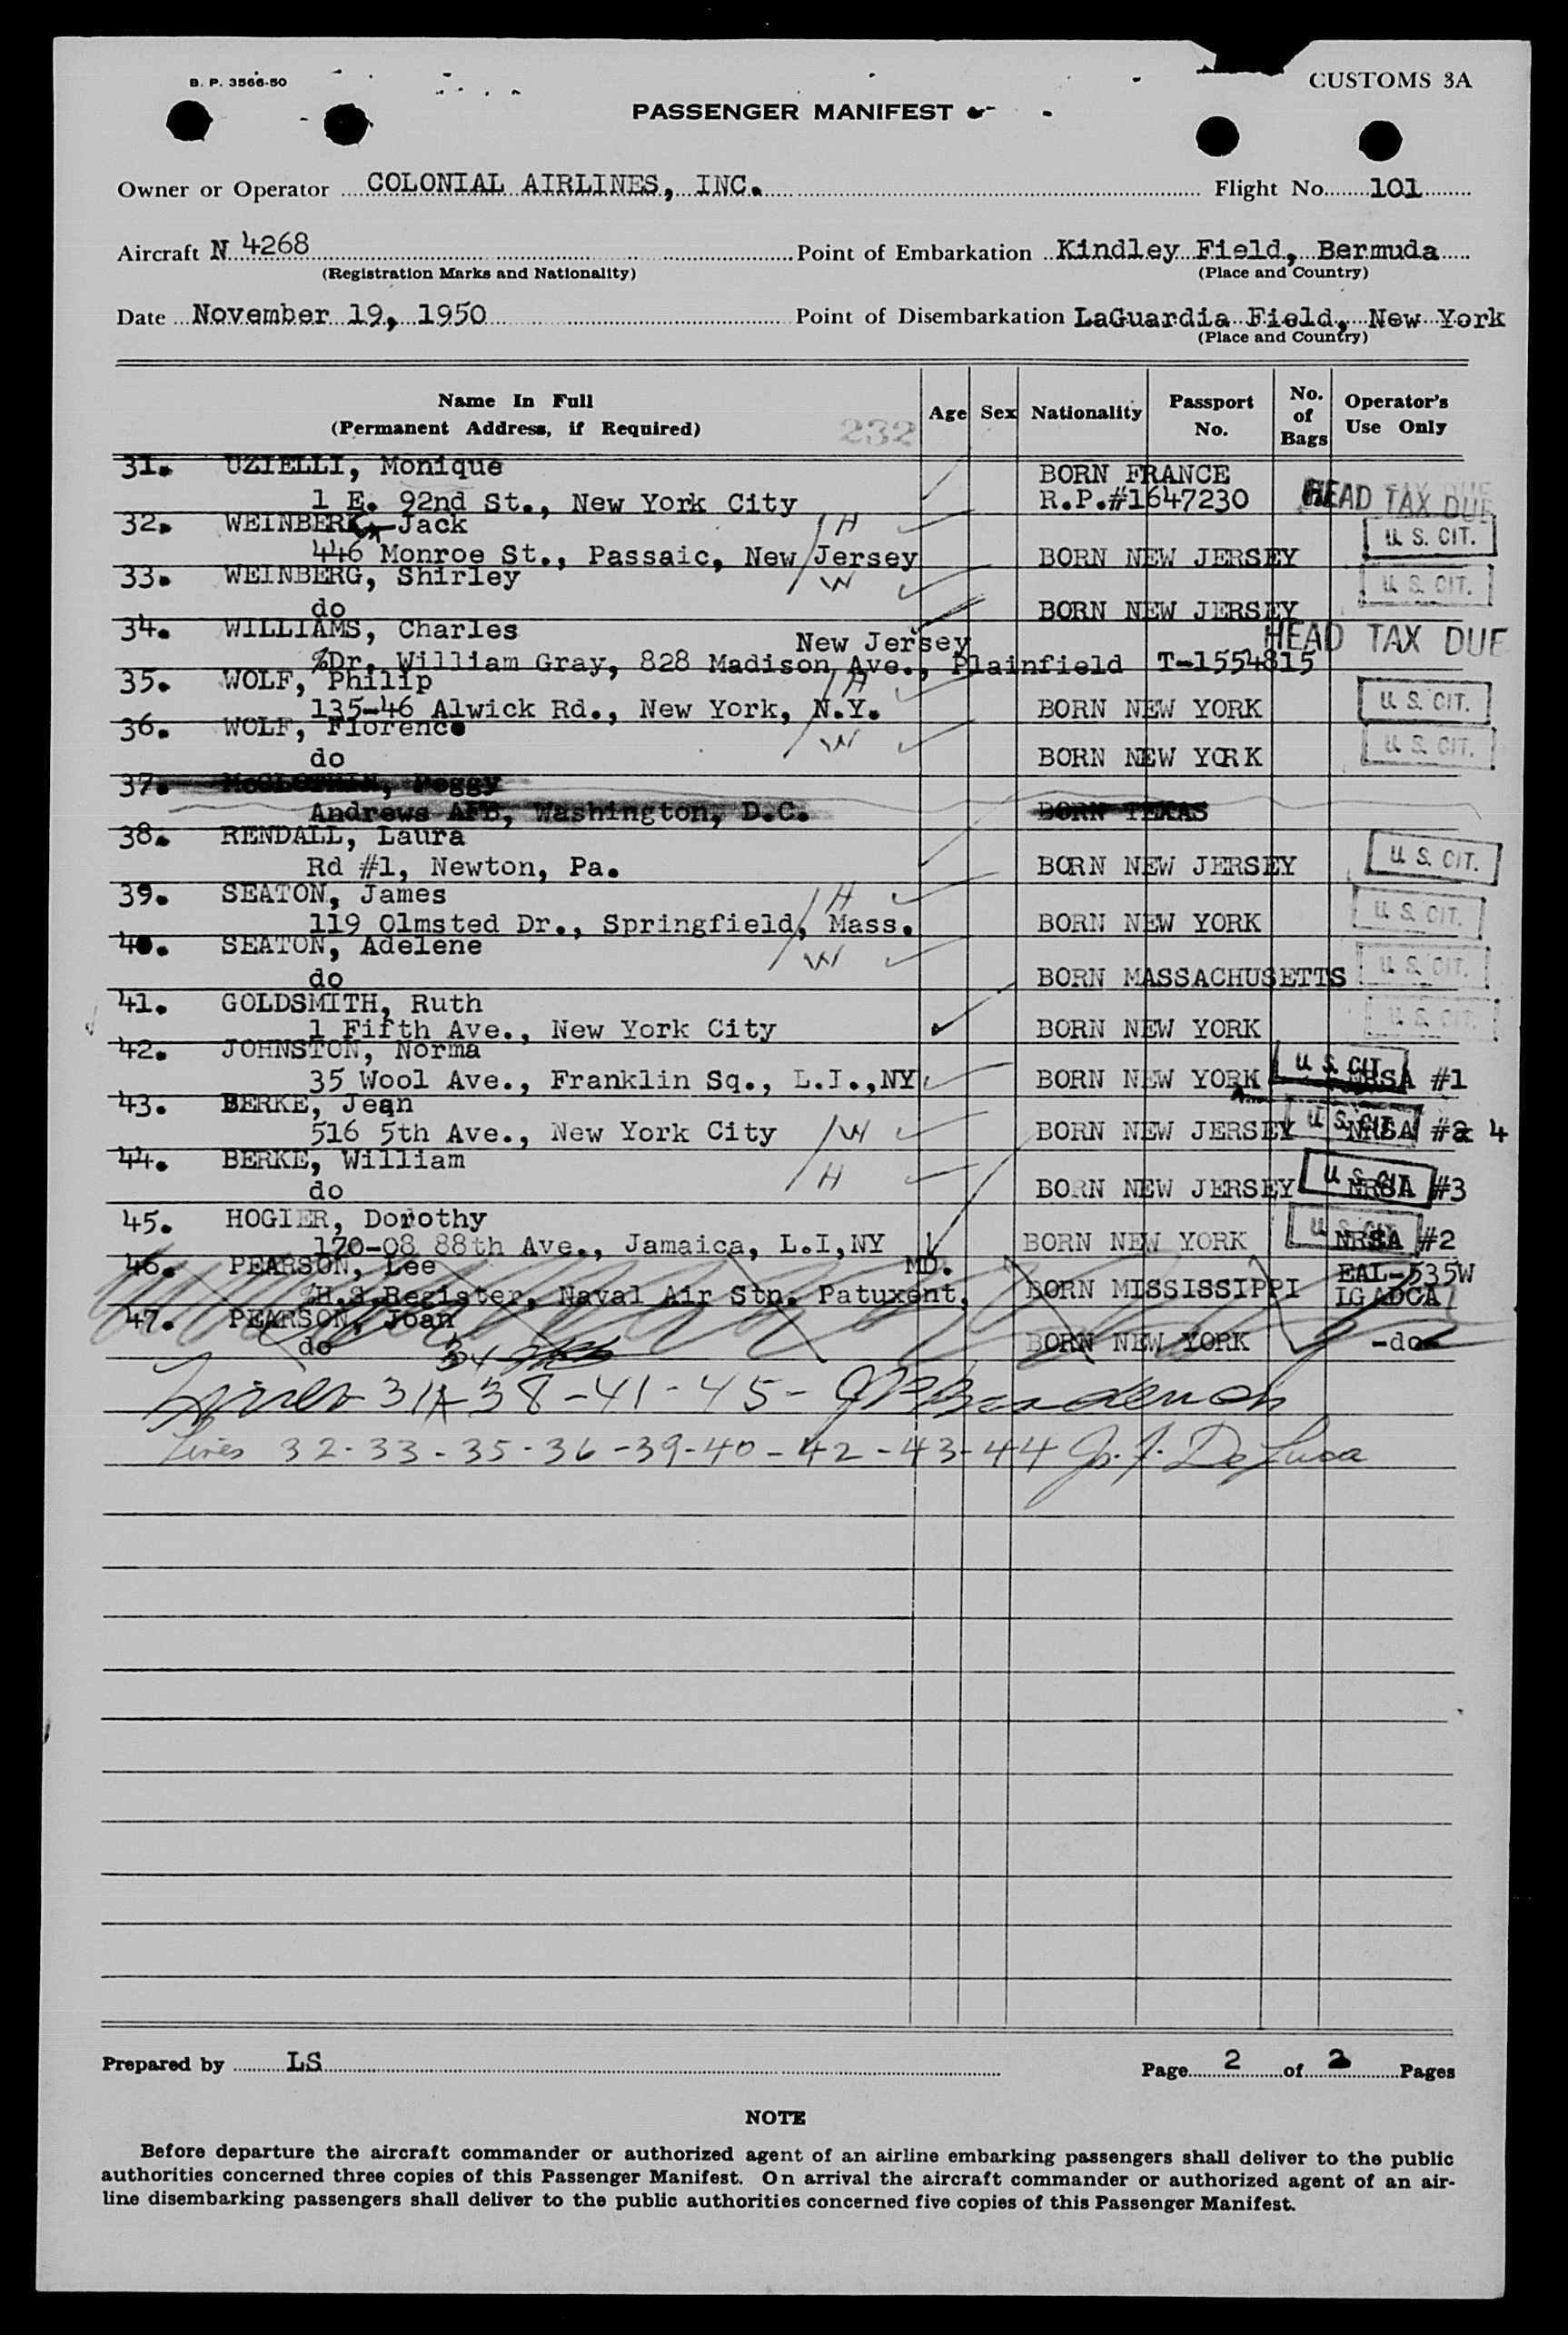 B. P. 3566-50
CUSTOMS 3A
PASSENGER MANIFEST
Owner or Operator COLONIAL AIRLINES, INC. Flight No. 101
Aircraft N 4268 Point of Embarkation Kindley Field, Bermuda
(Registration Marks and Nationality) (Place and Country)
Date November 19, 1950 Point of Disembarkation LaGuardia Field, New York
(Place and Country)
Name In Full (Permanent Address, if Required) 232 Age Sex Nationality Passport No. No. of Bags Operator's Use Only
31. UZIELLI, Monique BORN FRANCE
1 E. 92nd St., New York City R.P.#1647230 HEAD TAX DUE
32. WEINBERG, Jack H U. S. CIT.
446 Monroe St., Passaic, New Jersey BORN NEW JERSEY
33. WEINBERG, Shirley W U. S. CIT.
do BORN NEW JERSEY
34. WILLIAMS, Charles New Jersey HEAD TAX DUE
%Dr. William Gray, 828 Madison Ave., Plainfield T-1554815
35. WOLF, Philip H
135-46 Alwick Rd., New York, N.Y. BORN NEW YORK U. S. CIT.
36. WOLF, Florence W
do BORN NEW YORK U. S. CIT.
37. McGLOTHIN, Peggy
Andrews AFB, Washington, D.C. BORN TEXAS
38. RENDALL, Laura
Rd #1, Newton, Pa. BORN NEW JERSEY U. S. CIT.
39. SEATON, James H
119 Olmsted Dr., Springfield, Mass. BORN NEW YORK U. S. CIT.
40. SEATON, Adelene W
do BORN MASSACHUSETTS U. S. CIT.
41. GOLDSMITH, Ruth
1 Fifth Ave., New York City BORN NEW YORK U. S. CIT.
42. JOHNSTON, Norma
35 Wool Ave., Franklin Sq., L.I.,NY BORN NEW YORK U. S. CIT. NRSA #1
43. BERKE, Jean
516 5th Ave., New York City W BORN NEW JERSEY U. S. CIT. NRSA #2 4
44. BERKE, William H
do BORN NEW JERSEY U. S. CIT. NRSA #3
45. HOGIER, Dorothy
170-08 88th Ave., Jamaica, L.I,NY BORN NEW YORK U. S. CIT. NRSA #2
46. PEARSON, Lee MD. EAL-535W
%H.S.Register, Naval Air Stn. Patuxent, BORN MISSISSIPPI LGADCA
47. PEARSON, Joan
do BORN NEW YORK -do-
34
Lines 31-38-41-45-
Lines 32-33-35-36-39-40-42-43-44 J. DeLuca
Prepared by LS Page 2 of 2 Pages
NOTE
Before departure the aircraft commander or authorized agent of an airline embarking passengers shall deliver to the public
authorities concerned three copies of this Passenger Manifest. On arrival the aircraft commander or authorized agent of an air-
line disembarking passengers shall deliver to the public authorities concerned five copies of this Passenger Manifest.